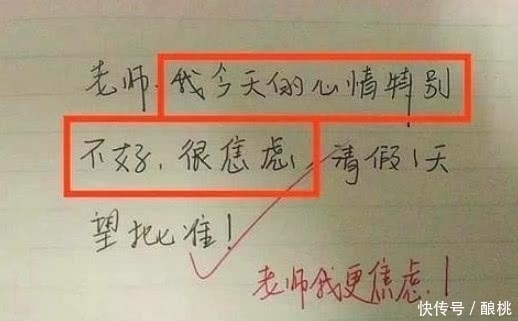 老师，我今天的心情特别
不好，很焦虑，请假1天
望批准！
老师我更焦虑！
快传号／酿桃